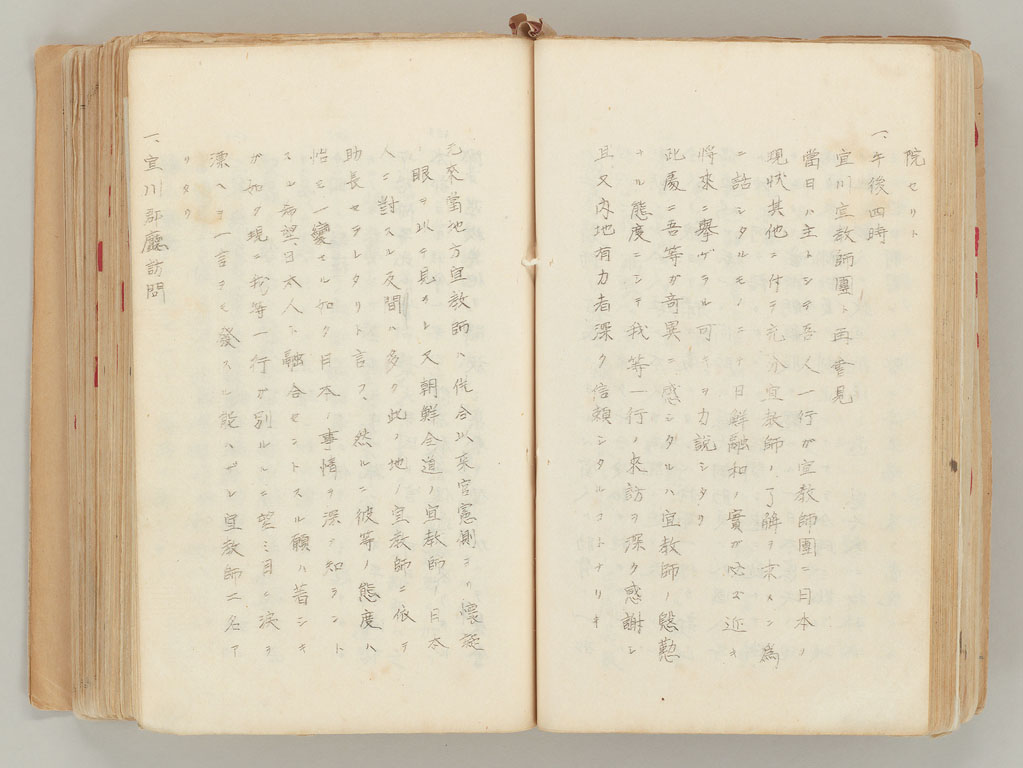 院セリト
一、午後四時
宣川宣教師團ト再會見
當日ハ主トシテ吾人一行ガ宣教師團ニ日本ノ
現状其他ニ付テ充分宣教師ノ了解ヲ求メン為
ニ話シタルモノニテ日鮮融和ノ實ガ必ズ近キ
將來ニ擧ゲラル可キヲ力説シタリ
此處ニ吾等ガ奇異ニ感ジタルハ宣教師ノ慇懃
ナル態度ニシテ我等一行ノ来訪ヲ深ク感謝シ
且又内地有力者深ク信頼シタルコトナリキ
元來當地方宣教師ハ併合以来官憲側ヨリ懐疑
ノ眼ヲ以テ見ラレ又朝鮮全道ノ宣教師ノ日本
人ニ對スル反間ハ多ク此ノ地ノ宣教師ニ依テ
助長セラレタリト言フ、然ルニ彼等ノ態度ハ
恰モ一變セル如ク日本ノ事情ヲ深ク知ラント
スル希望、日本人ト融合セントスル願ハ著シキ
ガ如ク現ニ我等一行ガ別ルルニ望ミ目ニ涙ヲ
漂ヘテ一言ヲモ發スル能ハザル宣教師二名ア
リタリ
一、宣川郡廳訪問